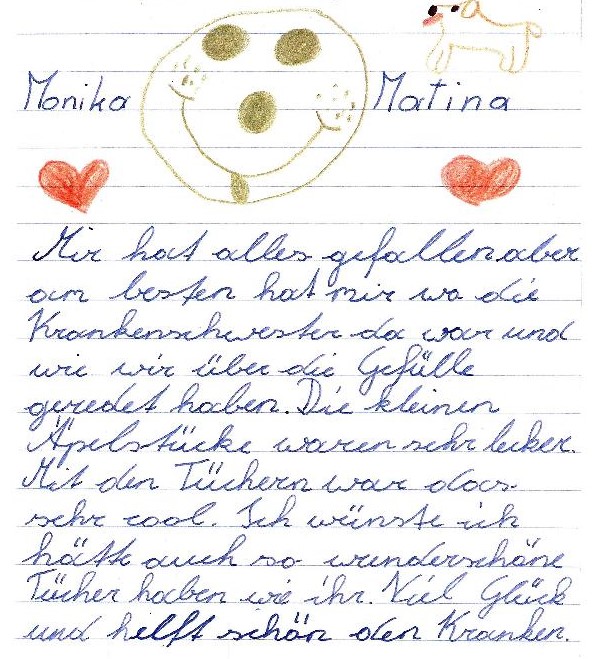 Monika Matina
Mir hat alles gefallen aber
am besten hat mir wo die
Krankenschwester da war und
wie wir über die Gefülle
geredet haben. Die kleinen
Äpelstücke waren sehr lecker.
Mit den Tüchern war das
sehr cool. Ich wünste ich
hätte auch so wunderschöne
Tücher haben wie ihr. Viel Glück
und helft schön den Kranken.